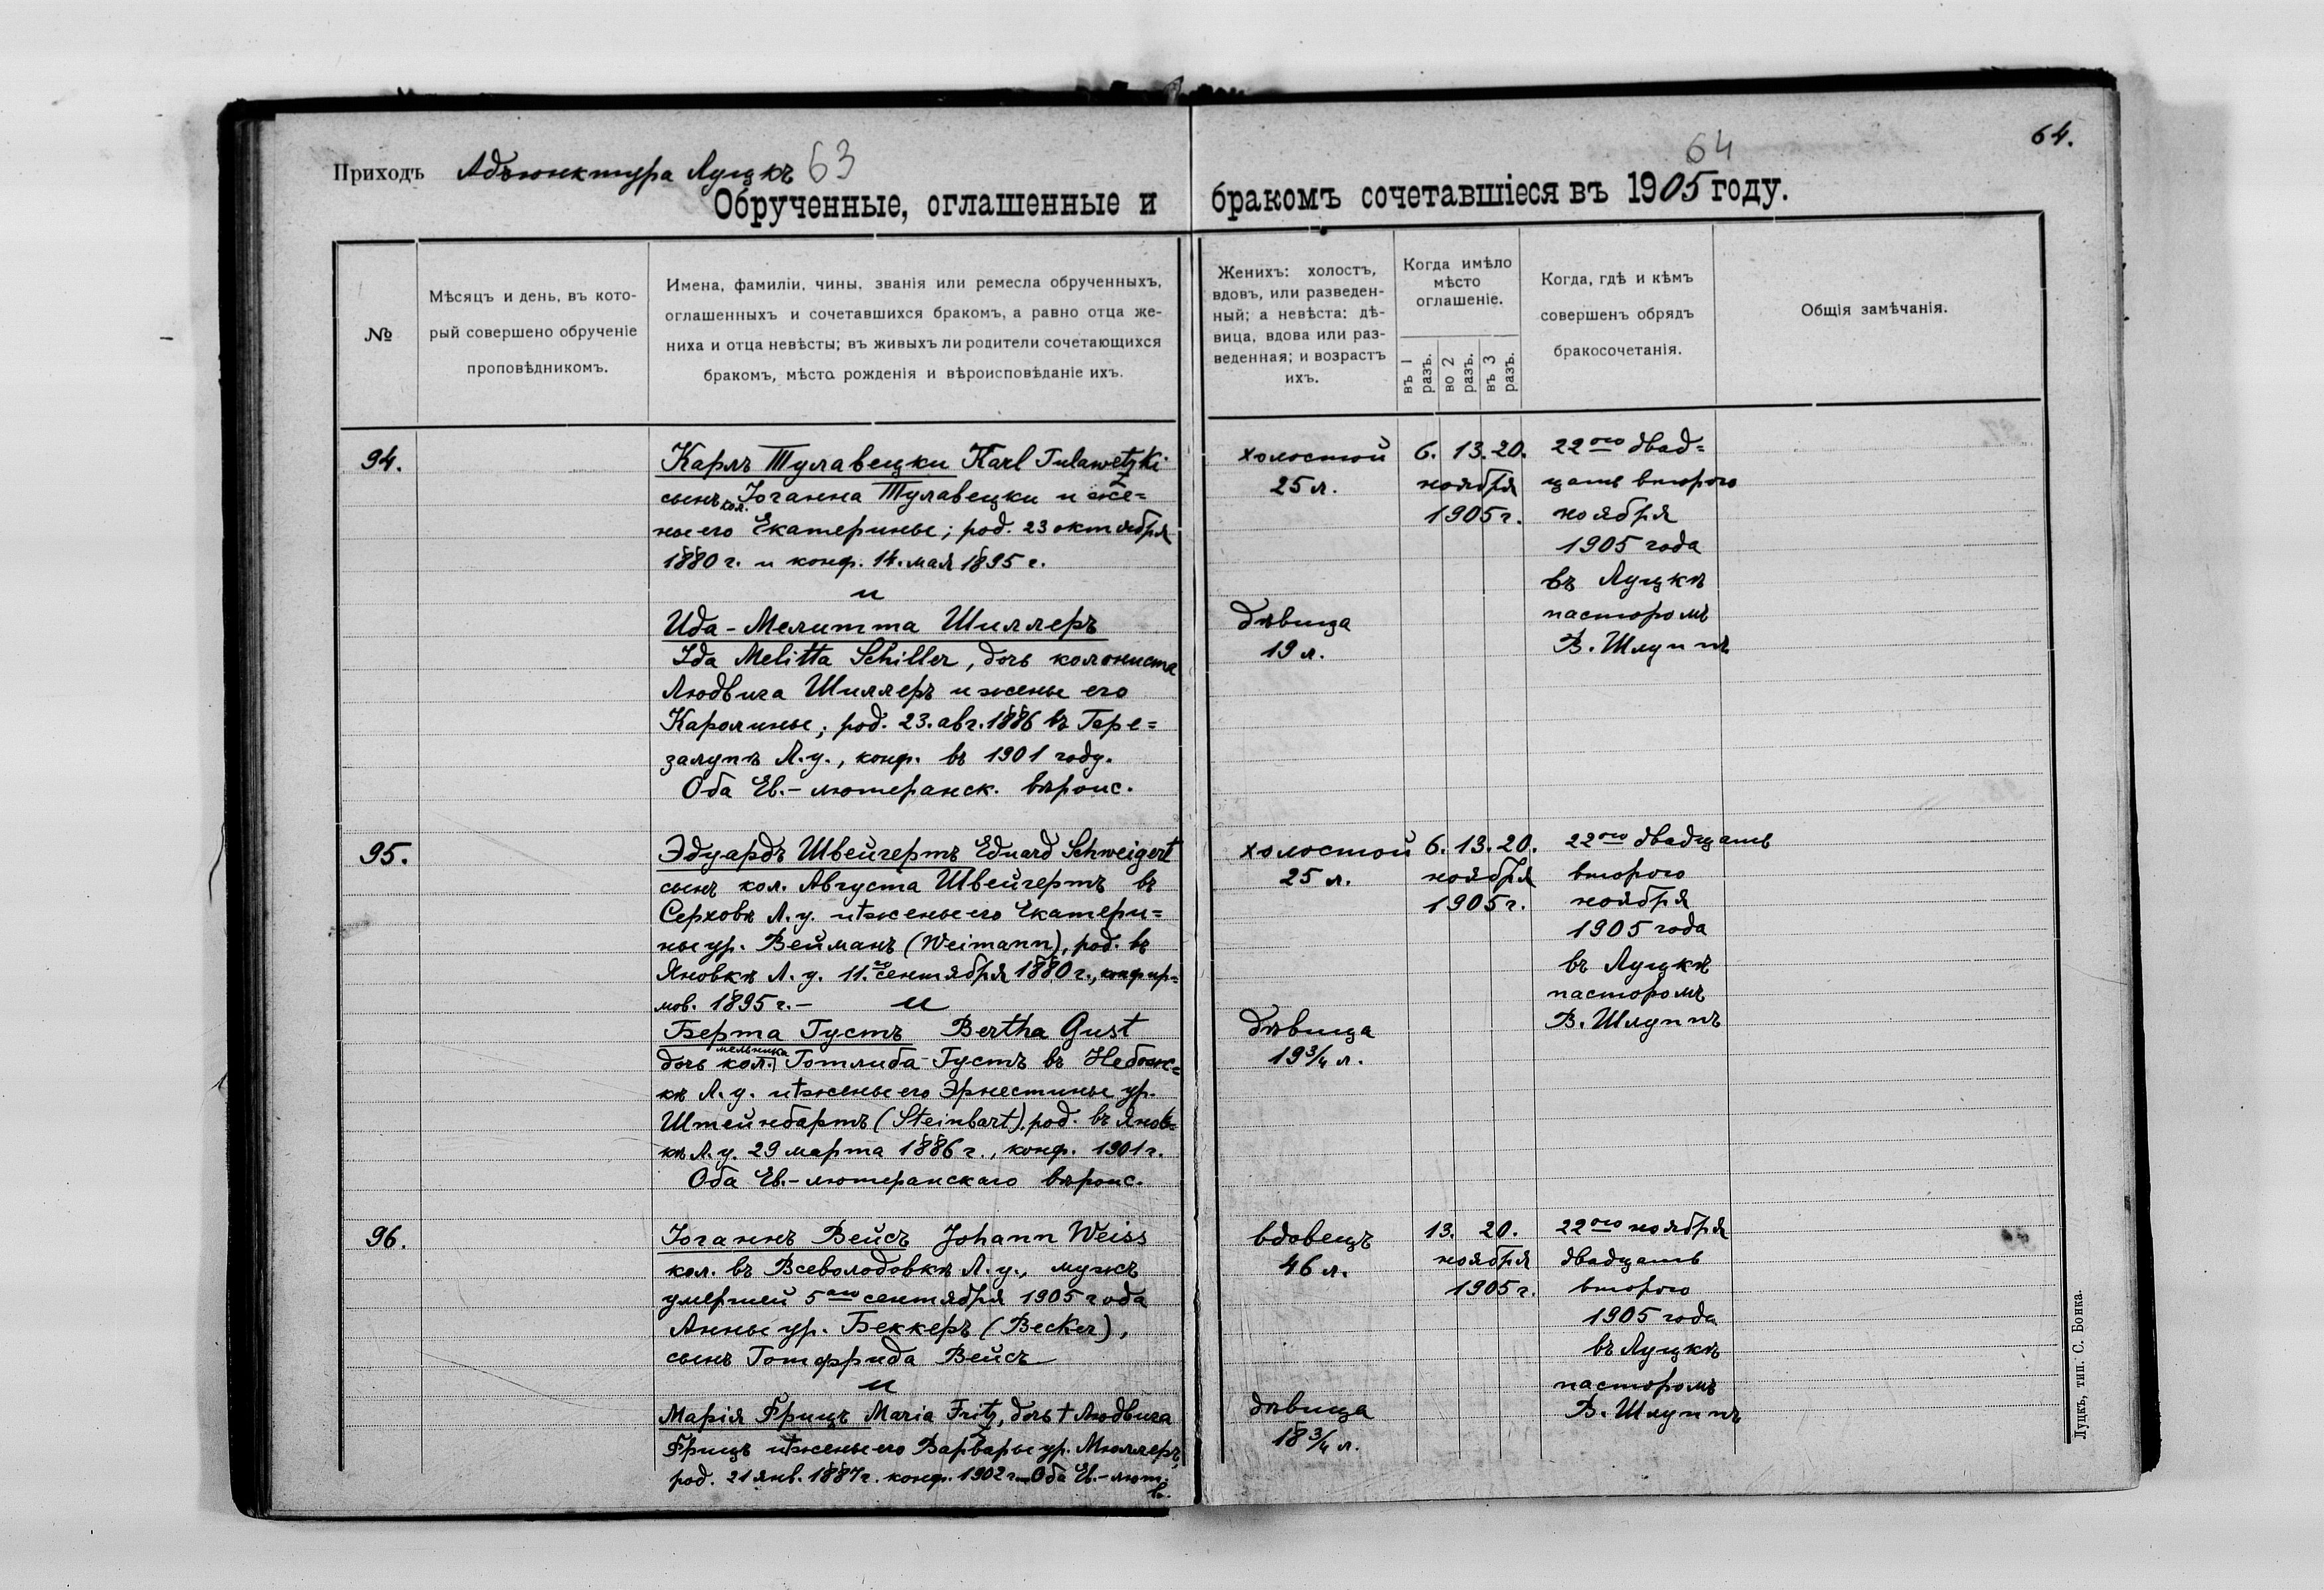 Приходъ Адъюнктура Луцкъ 63
64
64.
Обрученные, оглашенные и бракомъ сочетавшіеся въ 1905 году.
№
Мѣсяцъ и день, въ кото-
рый совершено обрученіе
проповѣдникомъ.
Имена, фамиліи, чины, званія или ремесла обрученныхъ,
оглашенныхъ и сочетавшихся бракомъ, а равно отца же-
ниха и отца невѣсты; въ живыхъ ли родители сочетающихся
бракомъ, мѣста рожденія и вѣроисповѣданіе ихъ.
Женихъ: холостъ,
вдовъ, или разведен-
ный; а невѣста: дѣ-
вица, вдова или раз-
веденная; и возрастъ
ихъ.
Когда имѣло
мѣсто
оглашеніе.
въ 1 разъ.
во 2 разъ.
въ 3 разъ.
Когда, гдѣ и кѣмъ
совершенъ обрядъ
бракосочетанія.
Общія замѣчанія.
94.
Карлъ Тулавецки Karl Tulawetzki
сынъ кол. Іоганна Тулавецки и же=
ны его Екатерины; род. 23 октября
1880 г. и конф. 14. мая 1895 г.
и
Ида-Мелитта Шиллеръ
Ida Melitta Schiller, дочь колониста
Людвига Шиллеръ и жены его
Каролины; род. 23. авг. 1886 въ Гере=
залупѣ Л. у., конф. въ 1901 году.
Оба Ев.-лютеранск. вѣроис.
холостой
25 л.
дѣвица
19 л.
6. 13. 20.
ноября
1905 г.
22ого двад=
цать второго
ноября
1905 года
въ Луцкѣ
пасторомъ
В. Шлуппъ
95.
Эдуардъ Швейгертъ Eduard Schweigert
сынъ кол. Августа Швейгертъ въ
Серховѣ Л. у. и † жены его Екатери=
ны ур. Вейманъ (Weimann), род. въ
Яновкѣ Л. у. 11.го сентября 1880 г., конфир=
мов. 1895 г. — и
Берта Густъ Bertha Gust
дочь кол. мельника Готлиба Густъ въ Небож=
кѣ Л. у. и † жены его Эрнестины ур.
Штейнбартъ (Steinbart), род. въ Янов=
кѣ Л. у. 29 марта 1886 г., конф. 1901 г.
Оба Ев.-лютеранскаго вѣроис.
холостой
25 л.
дѣвица
19 3/4 л.
6. 13. 20.
ноября
1905 г.
22ого двадцать
второго
ноября
1905 года
въ Луцкѣ
пасторомъ
В. Шлуппъ
96.
Іоганнъ Вейсъ Johann Weiss
кол. въ Всеволодовкѣ Л. у., мужъ
умершей 5аго сентября 1905 года
Анны ур. Беккеръ (Becker),
сынъ Готфрида Вейсъ
и
Марія Фрицъ Maria Fritz, дочь † Людвига
Фрицъ и † жены его Варвары ур. Мюллеръ,
род. 21 янв. 1887 г. конф. 1902 г. — Оба Ев.-лют.
в.
вдовецъ
46 л.
дѣвица
18 3/4 л.
13. 20.
ноября
1905 г.
22ого ноября
двадцать
второго
1905 года
въ Луцкѣ
пасторомъ
В. Шлуппъ
Луцкъ, тип. С. Бонка.